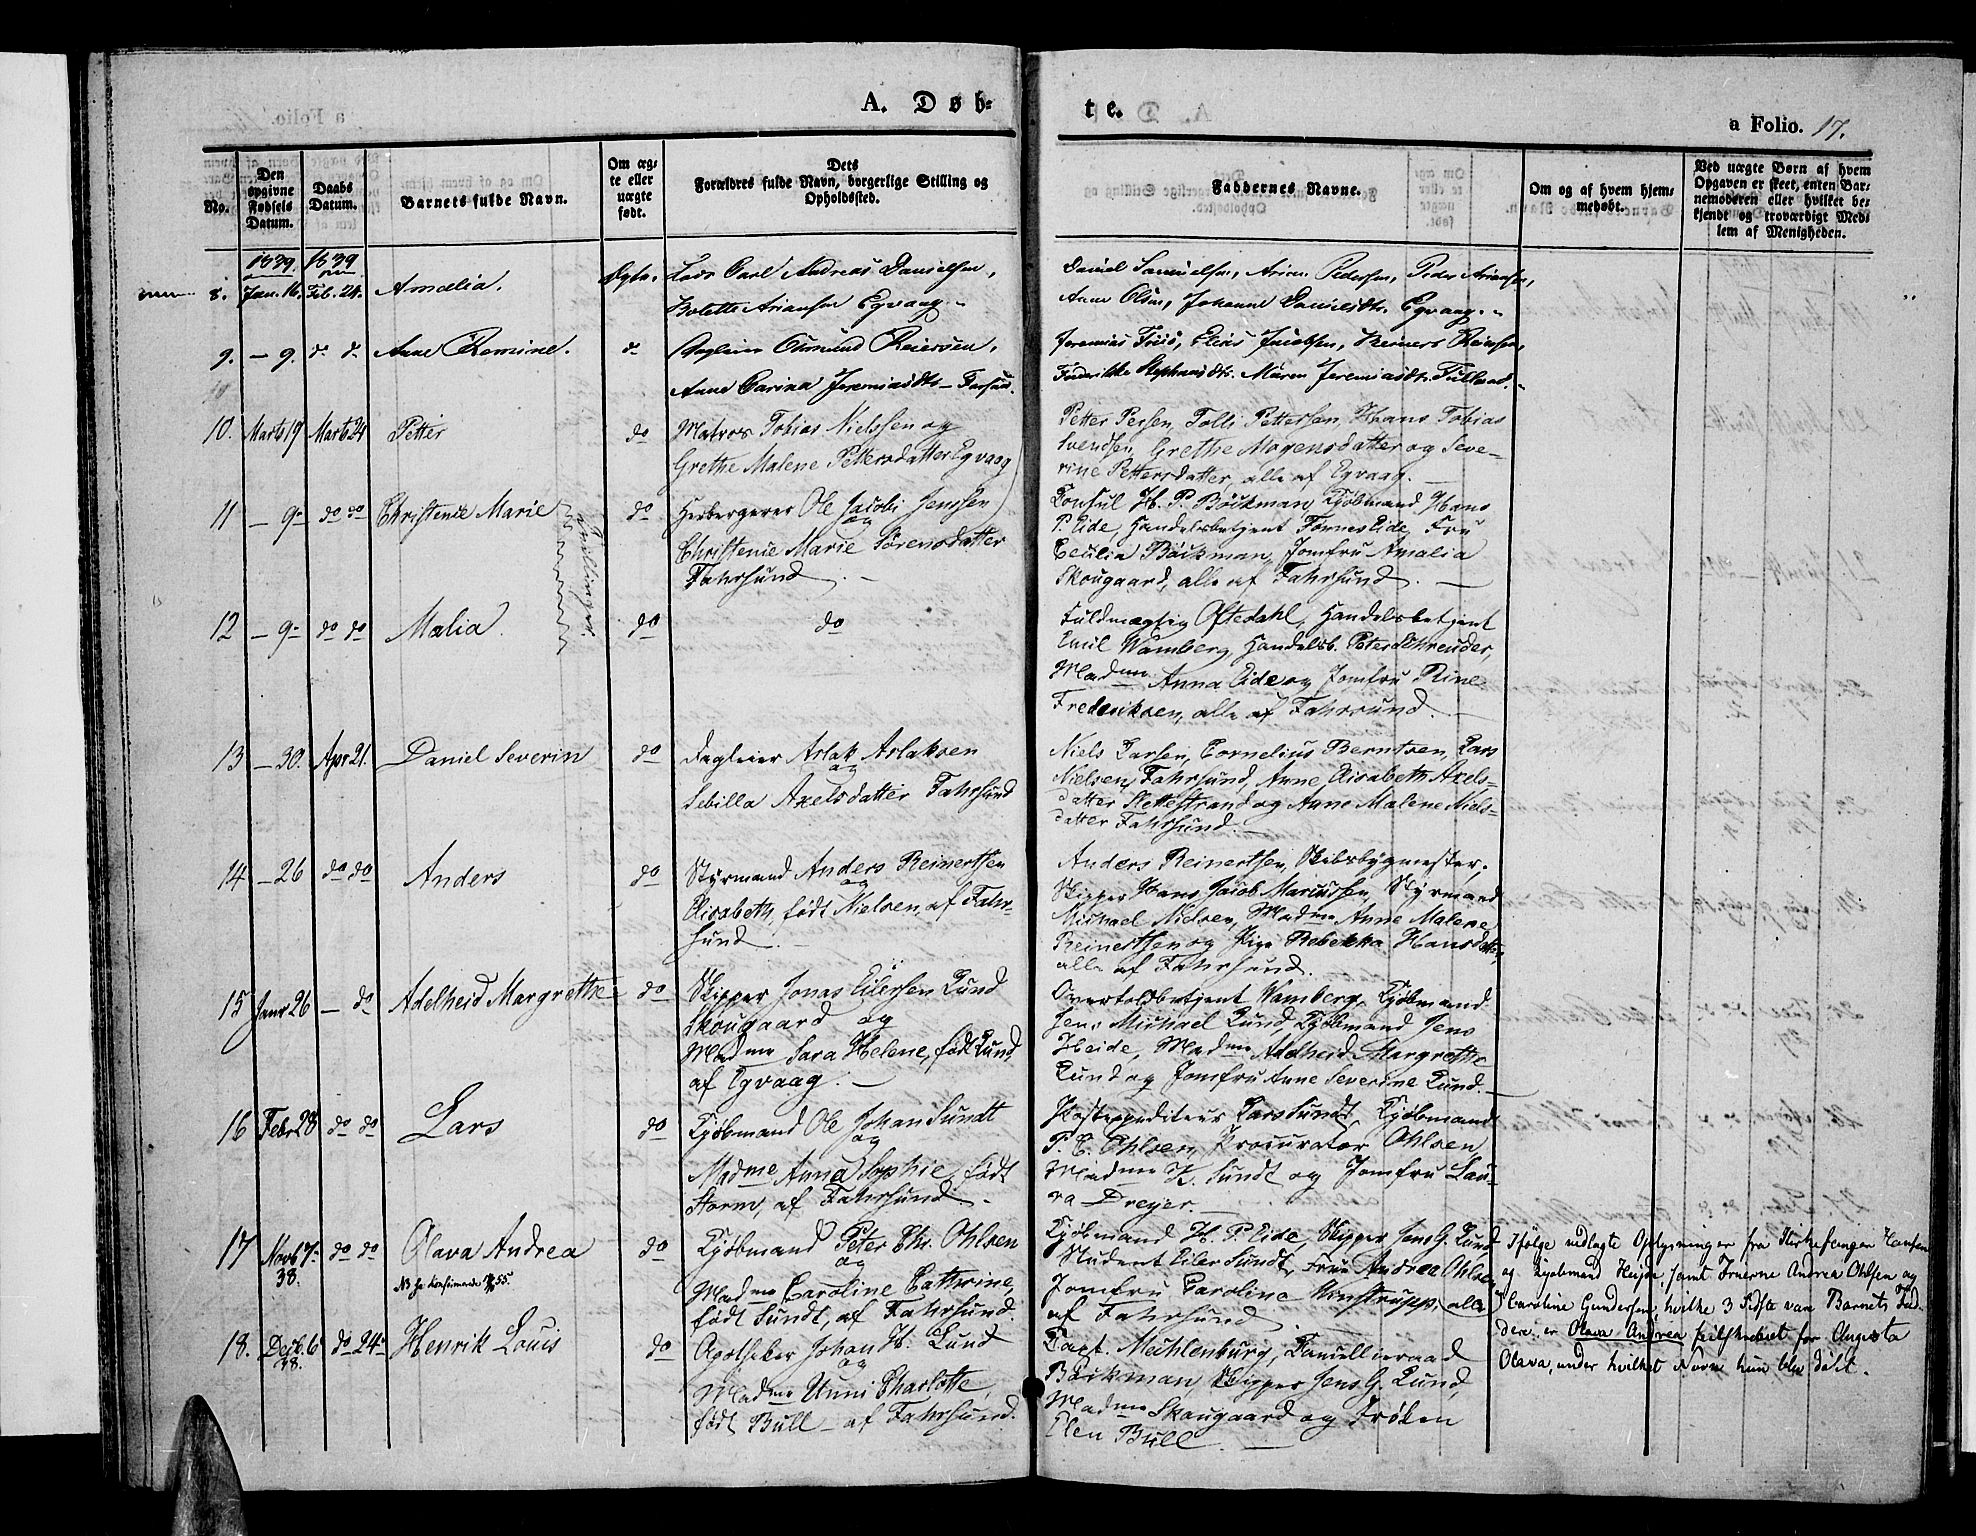 A. Døb-
te.
a Folio. 17.
No.
Den opgivne Fødsels Datum.
Daabs Datum.
Barnets fulde Navn.
Om ægte eller uægte født.
Dets Forældres fulde Navn, borgerlige Stilling og Opholdssted.
Faddernes Navne.
Om og af hvem hjemmedøbt.
Ved uægte Børn af hvem Opgaven er skeet, enten Barnemoderen eller hvilket bekjendt og troværdigt Medlem af Menigheden.
1839. 1839
8. Jan. 16. Feb. 24. Amalia. Ægte. Lods Carl Andreas Danielsen,
Bolette Ariansen Egvaag.
Daniel Samuelsen, Arian Pedersen, Peder Ariansen,
Anne Olsen, Johanne Danielsdtr. Egvaag.
9. – 9. d. d. Anne Romine. d. Dagleier Osmund Reiersen,
Anne Carina Jeremiasdtr – Farsund.
Jeremias Friis, Elias Jacobsen, Reinert Reiersen,
Frederikke Stephansdtr. Maren Jeremiasdtr.
10. Marts 19 Marts 24 Petter do Matros Tobias Nielssen og
Grethe Malene Pettersdatter Egvaag
Petter Persen, Tolli Pettersen, Hans Tobias
Svendsen, Grethe Mogensdatter og Seve-
rine Pettersdatter, alle af Egvaag.
11 – 9 do do Christenie Marie do Herbergerer Ole Jacobi Jenssen
og
Christenie Marie Sørensdatter
Fahrsund.
Tvillinger.
Consul H. P. Böckman, Kjøbmand Hans
P. Eide, Handelsbetjent Tønnes Eide, Fru
Cecilia Böckman, Jomfru Amalia
Skougaard, alle af Fahrsund.
12 – 9 do do Malia. do do
Fuldmægtig Oftedahl, Handelsbetjent
Emil Wamberg, Handelsb. Peter Schreuder,
Madme Anna Eide og Jomfru Rine
Frederiksen, alle af Fahrsund.
13 – 30. Apr 21. Daniel Severin do Dagleier Aslak Aslaksen
og
Sebilla Axelsdatter Fahrsund
Niels Larsen, Cornelius Berntsen, Lars
Nielsen, Fahrsund, Anne Elisabeth Axels-
datter Slettestrand og Anne Malene Niels-
datter Fahrsund.
14 – 26 do do Anders do Styrmand Anders Reinertsen
og
Elisabeth, født Nielsen, af Fahr-
sund
Anders Reinertsen, Skibsbygmester,
Skipper Hans Jacob Mariussen, Styrmand
Michael Nielsen, Madme Anne Malene
Reinertsen og Pige Rebekka Hansdatter,
alle af Fahrsund.
15 Janr 26 – do Adelheid Margrethe do Skipper Jonas Eilersen Lund
Skougaard og
Madme Sara Helene, født Lund
af Egvaag.
Overtoldbetjent Wamberg, Kjøbmand
Jens Michael Lund, Kjøbmand Jens
Heide, Madme Adelheid Margrethe
Lund og Jomfru Anne Severine Lund.
16 Febr 28 do do Lars do Kjøbmand Ole Johan Sundt
og
Madme Anna Sophie, født
Storm, af Fahrsund.
Postexpediteur Lars Sundt, Kjøbmand
P. C. Ohlsen, Procurator Ohlsen,
Madme K. Sundt og Jomfru Lau-
ra Dreyer.
17 Novb 7 38. do do Olava Andrea do Kjøbmand Peter Chr. Ohlsen
og
Madme Caroline Cathrine,
født Sundt, af Fahrsund.
Kjøbmand H. P. Eide, Skipper Jens G. Lund,
Student Eiler Sundt, Frue Andrea Ohlsen,
Jomfru Carolina, alle
af Fahrsund
Ifølge vedlagte Oplysninger fra Kirkesanger Hansen
og Kjøbmand Heyde, samt Fruerne Andrea Ohlsen og
Caroline Gundersen, hvilke 3 Sidste vare Barnets Fad-
dere, er Olava Andrea feilskrevet for Augusta
Olava, under hvilket Navn hun blev døbt.
18. Decb. 6 38. do 24 Henrik Louis do Apotheker Johan H. Lund
og
Madme Unni Charlotte,
født Bull – af Fahrsund.
Capt. Mechlenburg, Cancelliraad
Böckman, Skipper Jens G. Lund,
Madme Skougaard og Frøken
Elen Bull.